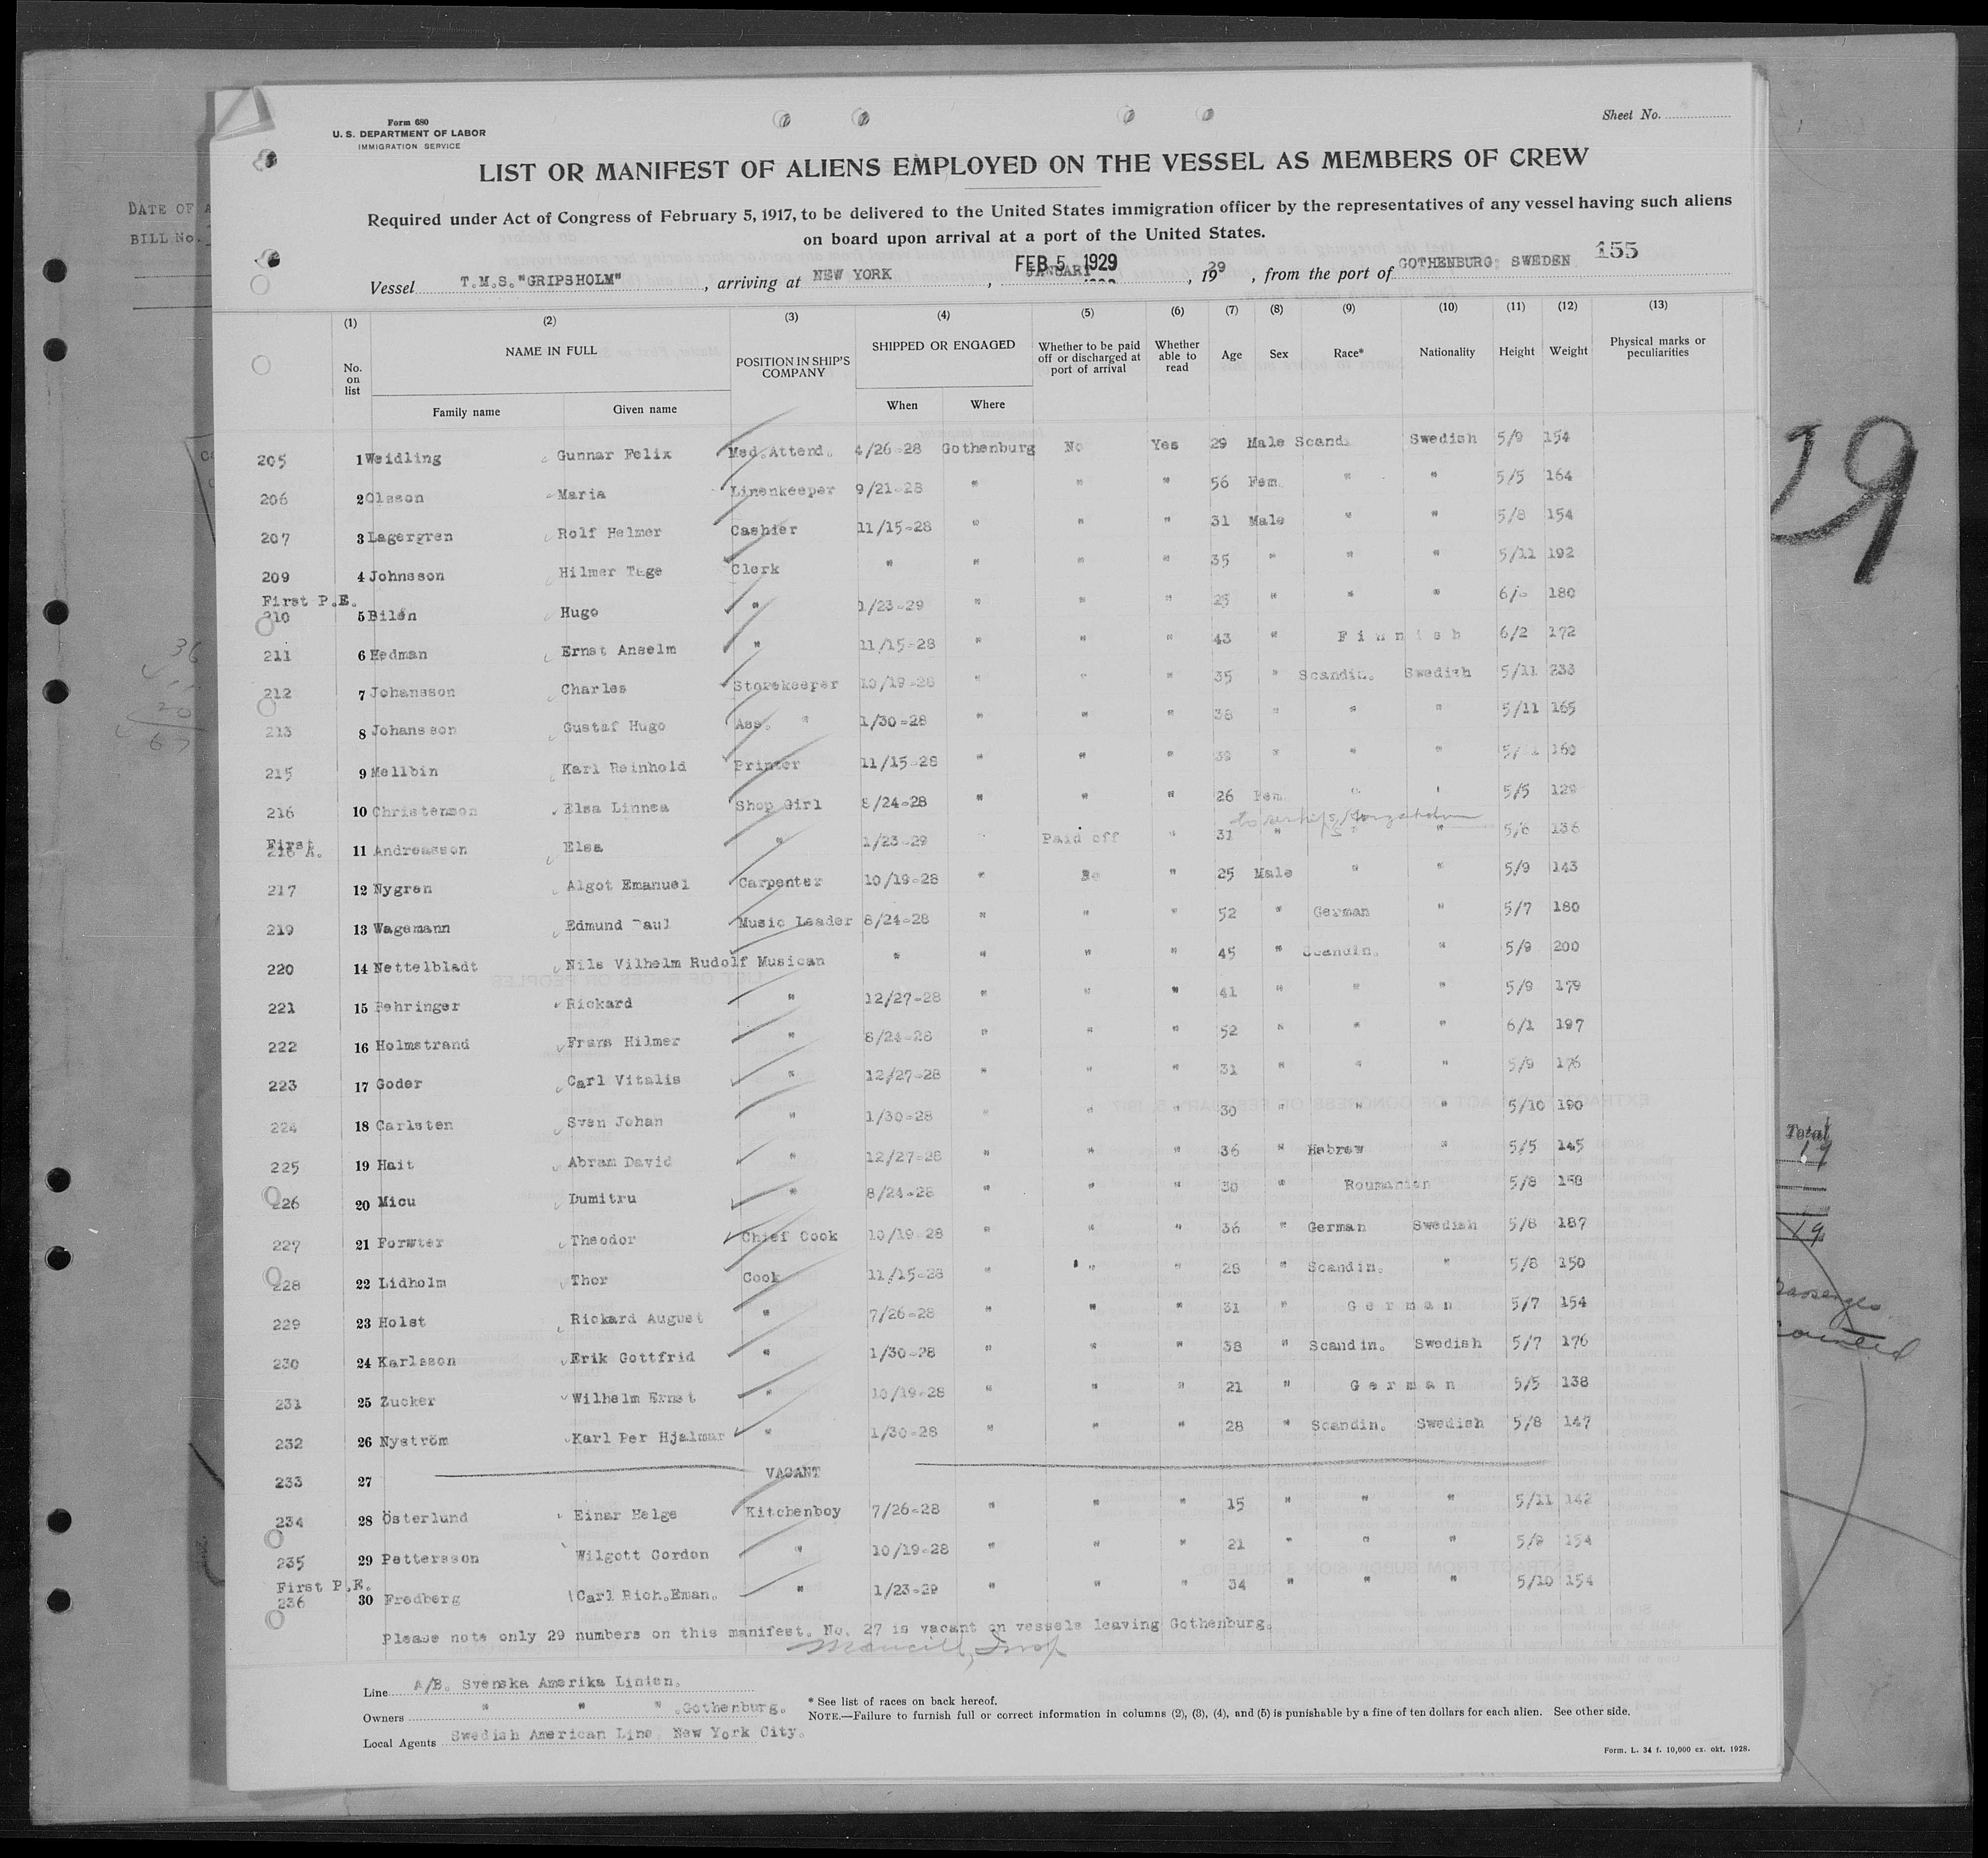 Form 680
U. S. DEPARTMENT OF LABOR
IMMIGRATION SERVICE
Sheet No.
LIST OR MANIFEST OF ALIENS EMPLOYED ON THE VESSEL AS MEMBERS OF CREW
Required under Act of Congress of February 5, 1917, to be delivered to the United States immigration officer by the representatives of any vessel having such aliens
on board upon arrival at a port of the United States.
155
Vessel T.M.S."GRIPSHOLM", arriving at NEW YORK, FEB 5 1929 JANUARY, 1929, from the port of GOTHENBURG; SWEDEN
(1) (2) (3) (4) (5) (6) (7) (8) (9) (10) (11) (12) (13)
No. on list NAME IN FULL POSITION IN SHIP'S COMPANY SHIPPED OR ENGAGED Whether to be paid off or discharged at port of arrival Whether able to read Age Sex Race* Nationality Height Weight Physical marks or peculiarities
Family name Given name When Where
205 1 Weidling Gunnar Felix Med.Attend. 4/26-28 Gothenburg No Yes 29 Male Scand. Swedish 5/9 154
206 2 Olsson Maria Linenkeeper 9/21-28 " " " 56 Fem. " " 5/5 164
207 3 Lagergren Rolf Helmer Cashier 11/15-28 " " " 31 Male " " 5/8 154
209 4 Johnsson Hilmer Tage Clerk " " " " 35 " " " 5/11 192
First P.E.
210 5 Bilén Hugo " 1/23-29 " " " 25 " " " 180
211 6 Hedman Ernst Anselm " 11/15-28 " " " 43 " Finnish 6/2 172
212 7 Johansson Charles Storekeeper 10/19-28 " " " 35 " Scandin. Swedish 5/11 233
213 8 Johansson Gustaf Hugo Ass. " 1/30-28 " " " 38 " " " 5/11 165
215 9 Mellbin Karl Reinhold Printer 11/15-28 " " " " " " 160
216 10 Christenson Elsa Linnea Shop Girl 8/24-28 " " " 26 Fem. " " 5/5 129
First
216 A. 11 Andreasson Elsa " 1/23-29 " Paid off " 31 " " " 5/6 136
217 12 Nygren Algot Emanuel Carpenter 10/19-28 " No " 25 Male " " 5/9 143
219 13 Wagemann Edmund Paul Music Leader 8/24-28 " " " 52 " German " 5/7 180
220 14 Nettelbladt Nils Vilhelm Rudolf Musican " " " " 45 " Scandin. " 5/9 200
221 15 Behringer Rickard " 12/27-28 " " " 41 " " " 5/9 179
222 16 Holmstrand Frans Hilmer " 8/24-28 " " " 52 " " " 6/1 197
223 17 Goder Carl Vitalis " 12/27-28 " " " 31 " " " 5/9 176
224 18 Carlsten Sven Johan " 1/30-28 " " " 30 " " " 5/10 190
225 19 Hait Abram David " 12/27-28 " " " 36 " Hebrew " 5/5 145
226 20 Micu Dumitru " 8/24-28 " " " 30 " Roumanian 5/8 158
227 21 Forwter Theodor Chief Cook 10/19-28 " " " 36 " German Swedish 5/8 187
228 22 Lidholm Thor Cook 11/15-28 " " " 28 " Scandin. " 5/8 150
229 23 Holst Rickard August " 7/26-28 " " " 31 " German 5/7 154
230 24 Karlsson Erik Gottfrid " 1/30-28 " " " 38 " Scandin. Swedish 5/7 176
231 25 Zucker Wilhelm Ernst " 10/19-28 " " " 21 " German 5/5 138
232 26 Nyström Karl Per Hjalmar " 1/30-28 " " " 28 " Scandin. Swedish 5/8 147
233 27 VACANT
234 28 Österlund Einar Helge Kitchenboy 7/26-28 " " " 15 " " " 5/11 142
235 29 Pettersson Wilgott Gordon " 10/19-28 " " " 21 " " " 5/9 154
First P.E.
236 30 Fredberg Carl Rich.Eman. " 1/23-29 " " " 34 " " " 5/10 154
Please note only 29 numbers on this manifest. No. 27 is vacant on vessels leaving Gothenburg.
Line A/B. Svenska Amerika Linien.
Owners " " " .Gothenburg.
Local Agents Swedish American Line, New York City.
* See list of races on back hereof.
NOTE.—Failure to furnish full or correct information in columns (2), (3), (4), and (5) is punishable by a fine of ten dollars for each alien. See other side.
Form. L. 34 f. 10,000 ex. okt. 1928.
DATE OF
BILL No.
29
Total
19